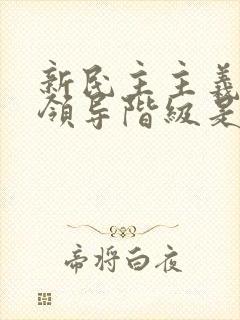 新民主主義
領导階級是
帝将白夜